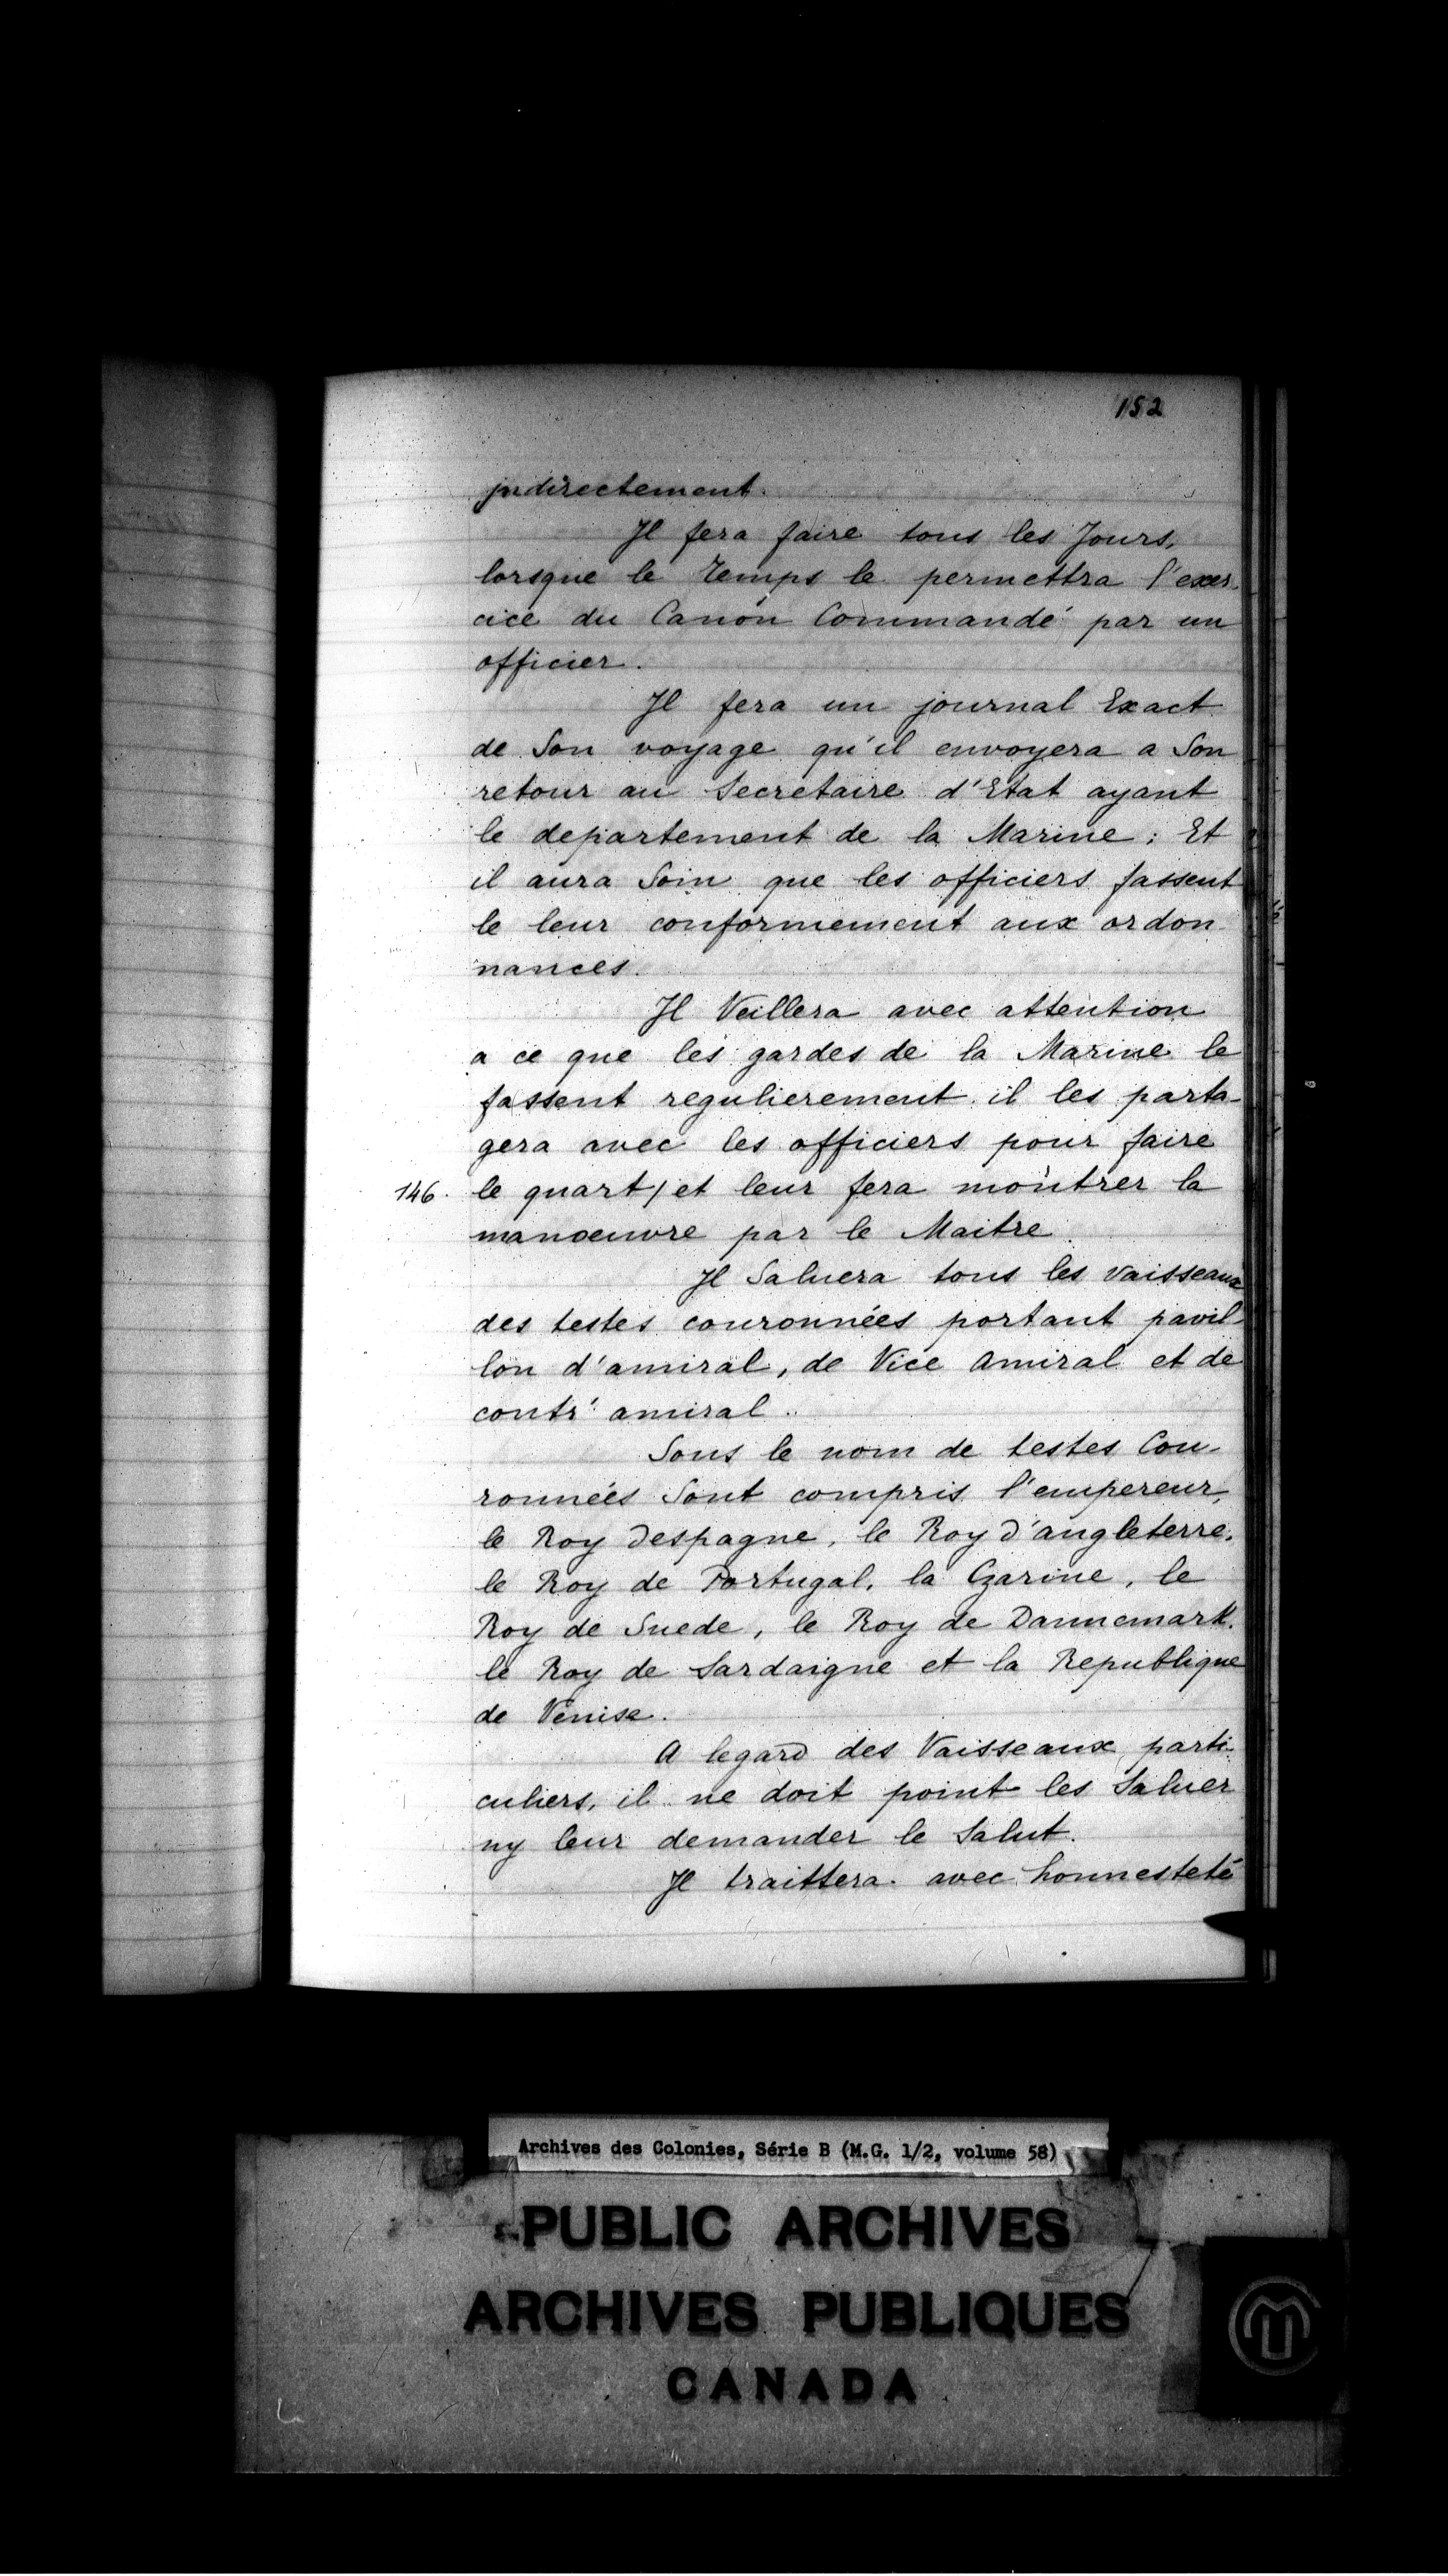 152
jndirectement.
Jl fera faire tous les Jours,
lorsque le temps le permettra l'exer-
cice du Canon Commandé par un
officier.
Jl fera un journal Exact
de Son voyage qu'il envoyera a Son
retour au Secretaire d'Etat ayant
le departement de la Marine; Et
il aura Soin que les officiers fassent
le leur conformement aux ordon-
nances.
Jl Veillera avec attention
a ce que les gardes de la Marine le
fassent regulierement. il les parta-
gera avec les officiers pour faire
146. le quart / et leur fera montrer la
manoeuvre par le Maitre.
Jl Saluera tous les vaisseaux
des testes couronnées portant pavil-
lon d'amiral, de Vice amiral et de
contr' amiral.
Sous le nom de testes Cou-
ronnées Sont compris l'empereur,
le Roy Despagne, le Roy d'angleterre,
le Roy de Portugal, la Czarine, le
Roy de Suede, le Roy de Dannemark,
le Roy de Sardaigne et la Republique
de Venise.
A legard des Vaisseaux parti-
culiers, il ne doit point les Saluer
ny leur demander le Salut.
Jl traittera avec honnesteté
Archives des Colonies, Série B (M.G. 1/2, volume 58)
PUBLIC ARCHIVES
ARCHIVES PUBLIQUES
CANADA